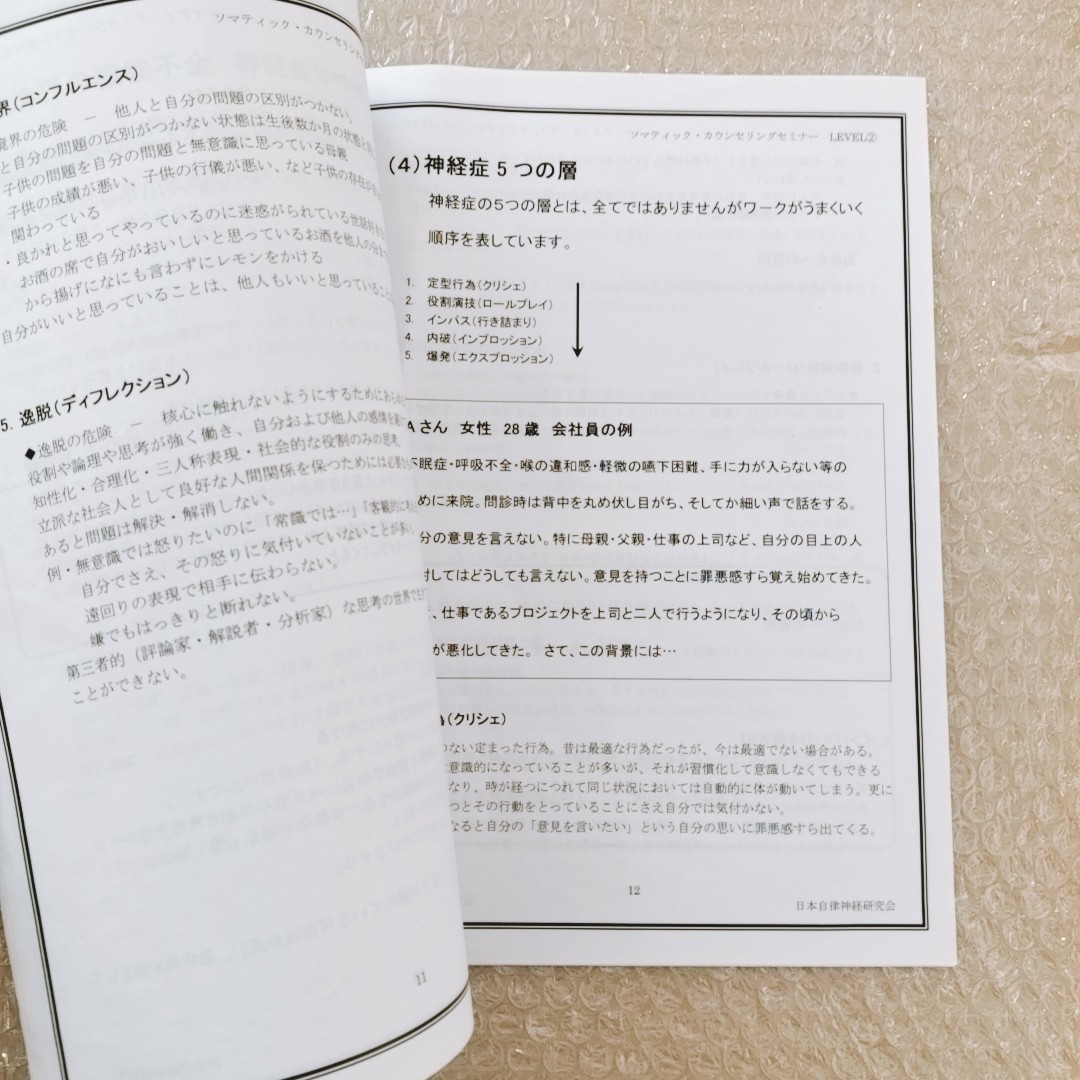 ソマティック・カウンセリング
界(コンフルエンス)
境界の危険 － 他人と自分の問題の区別がつかない。
と自分の問題の区別がつかない状態は生後数か月の状態と
子供の問題を自分の問題と無意識に思っている母親
子供の成績が悪い、子供の行儀が悪い、など子供の存在が
関わっている
・良かれと思ってやっているのに迷惑がられている世話好き
お酒の席で自分がおいしいと思っているお酒を他人の分まで
から揚げになにも言わずにレモンをかける
自分がいいと思っていることは、他人もいいと思っていること
5. 逸脱(ディフレクション)
◆逸脱の危険 － 核心に触れないようにするために
役割や論理や思考が強く働き、自分および他人の感情を
知性化・合理化・三人称表現・社会的な役割のみの思考
立派な社会人として良好な人間関係を保つためには必要
あると問題は解決・解消しない。
例・無意識では怒りたいのに「常識では…」「客観的に
自分でさえ、その怒りに気付いていないことが多い
遠回りの表現で相手に伝わらない。
嫌でもはっきりと断れない。
第三者的（評論家・解説者・分析家）な思考の世界で
ことができない。
11
ソマティック・カウンセリングセミナー LEVEL②
(4)神経症 5 つの層
神経症の5つの層とは、全てではありませんがワークがうまくいく
順序を表しています。
1. 定型行為(クリシェ)
2. 役割演技(ロールプレイ)
3. インパス(行き詰まり)
4. 内破(インプロッション)
5. 爆発(エクスプロッション)
Aさん 女性 28 歳 会社員の例
眠症・呼吸不全・喉の違和感・軽微の嚥下困難、手に力が入らない等の
めに来院。問診時は背中を丸め伏し目がち、そしてか細い声で話をする。
分の意見を言えない。特に母親・父親・仕事の上司など、自分の目上の人
対してはどうしても言えない。意見を持つことに罪悪感すら覚え始めてきた。
、仕事であるプロジェクトを上司と二人で行うようになり、その頃から
が悪化してきた。 さて、この背景には…
(クリシェ)
ない定まった行為。昔は最適な行為だったが、今は最適でない場合がある。
意識的になっていることが多いが、それが習慣化して意識しなくてもできる
なり、時が経つにつれて同じ状況においては自動的に体が動いてしまう。更に
っとその行動をとっていることにさえ自分では気付かない。
なると自分の「意見を言いたい」という自分の思いに罪悪感すら出てくる。
12
日本自律神経研究会